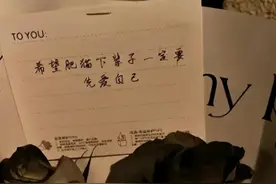 TO YOU:
希望肥猫下辈子一定要
先爱自己
ny